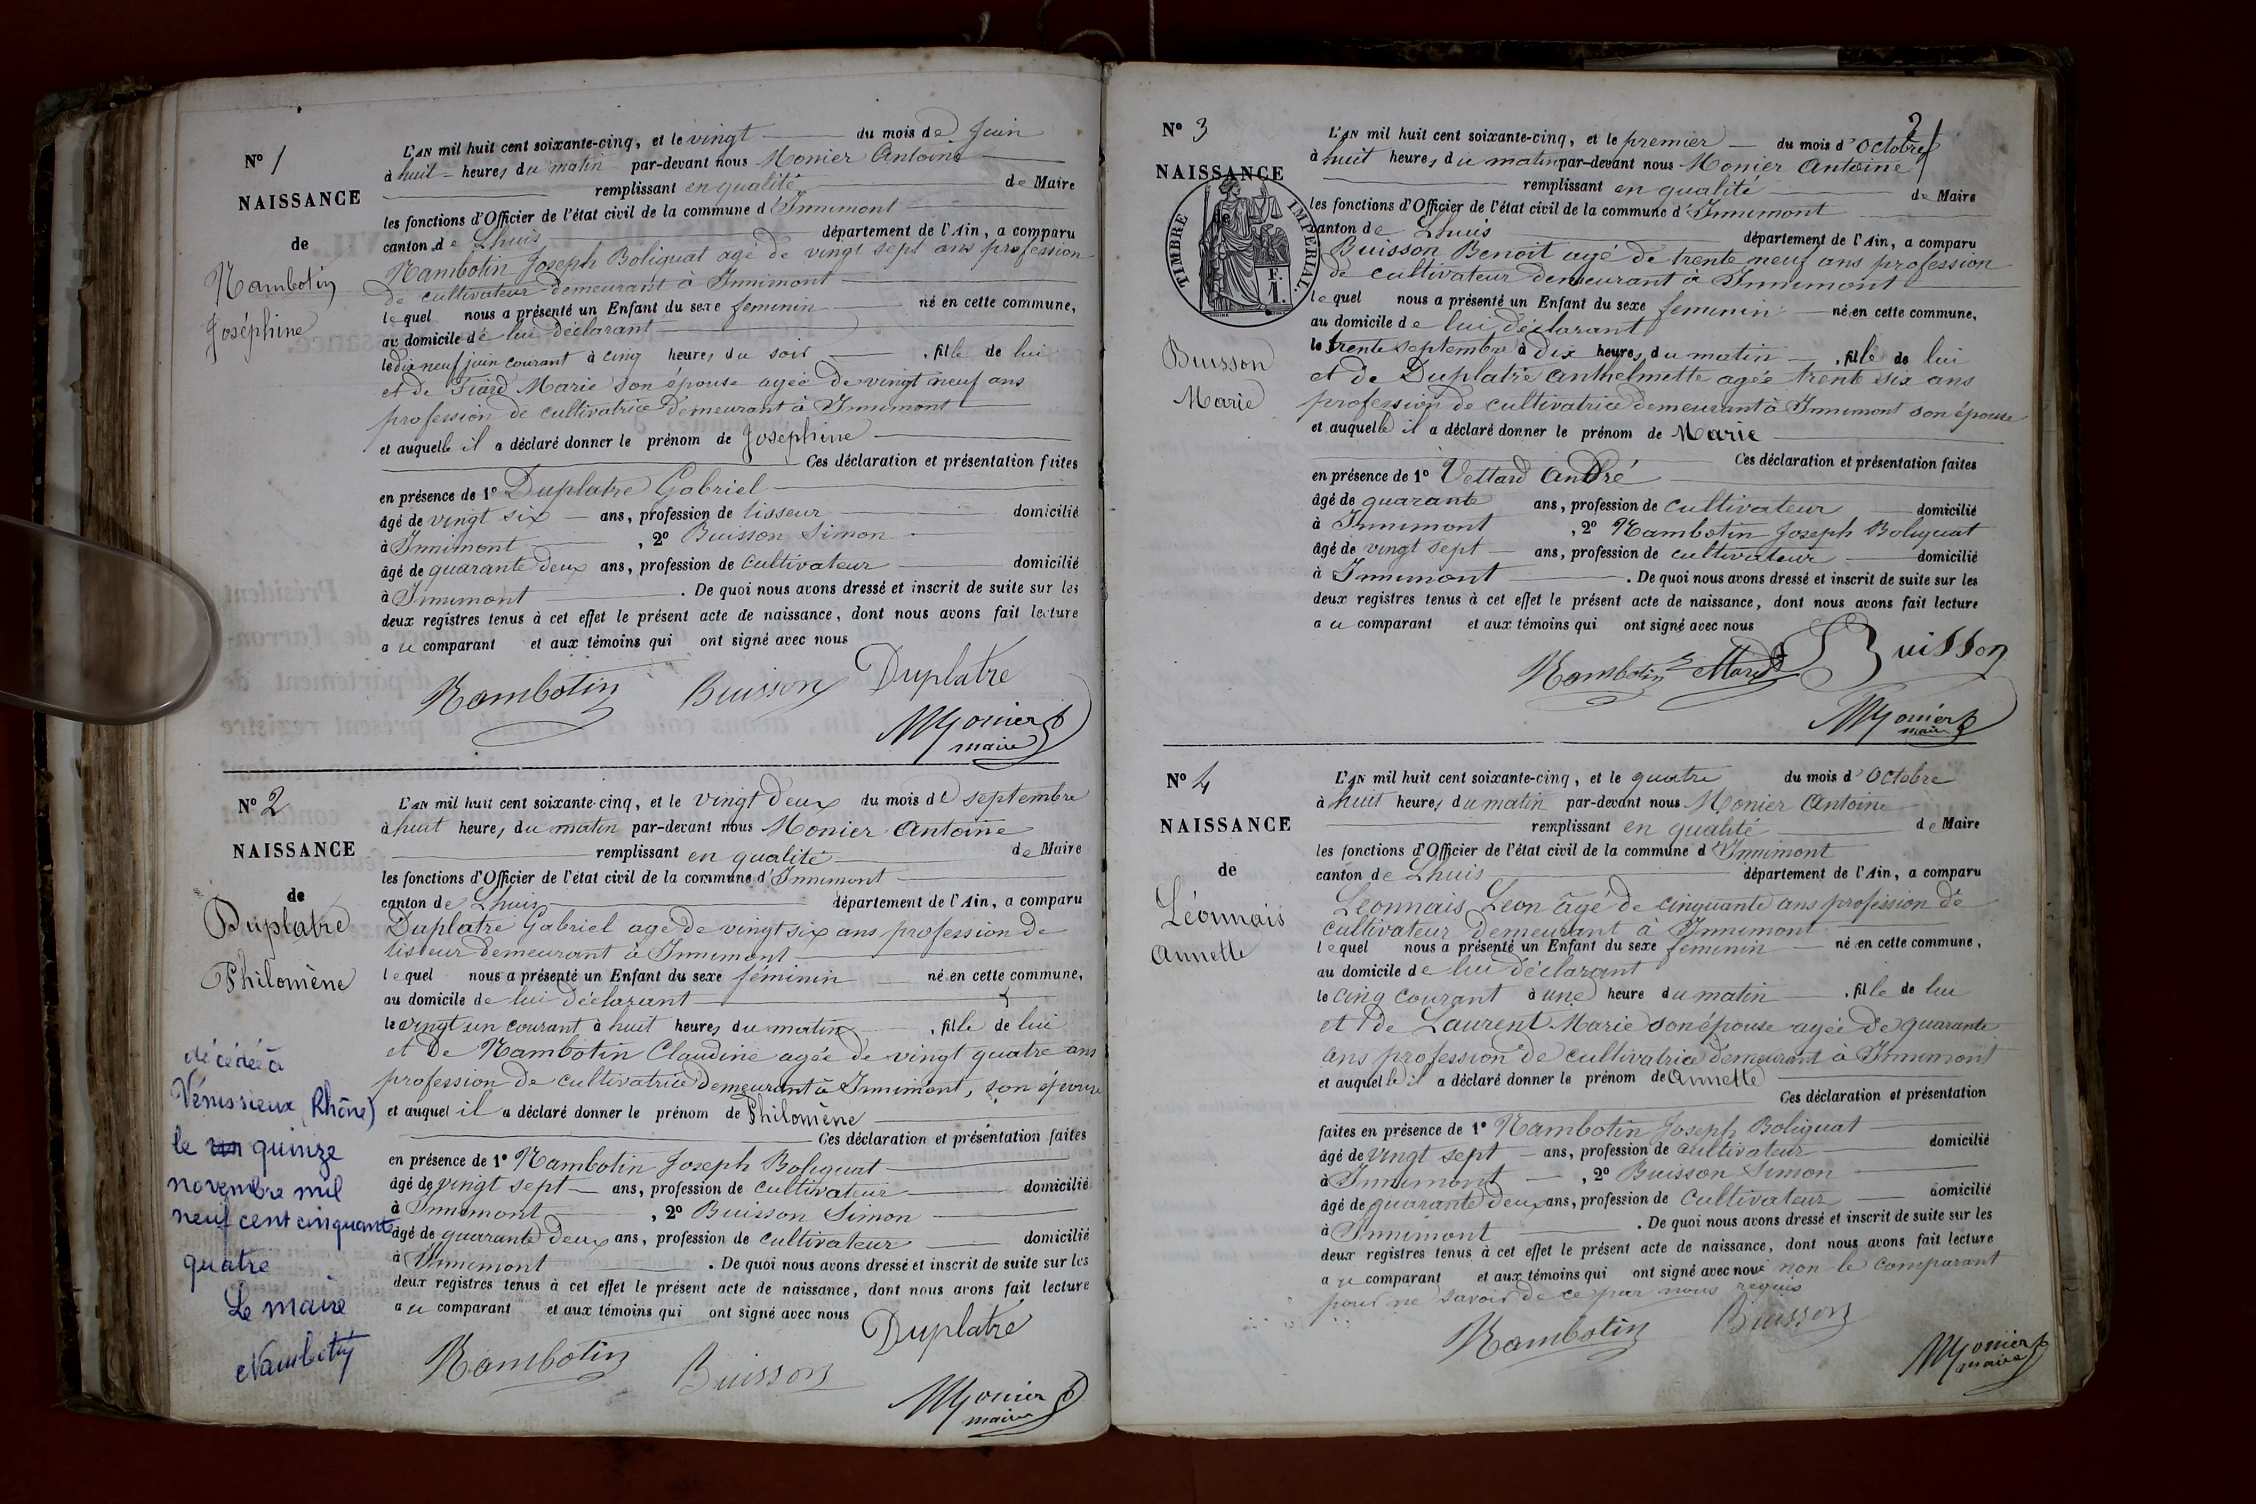 N° 1
NAISSANCE
de
Nambotin
Joséphine
L'AN mil huit cent soixante-cinq, et le vingt du mois de Juin
à huit heures du matin par-devant nous Monier Antoine
remplissant en qualité de Maire
les fonctions d'Officier de l'état civil de la commune d'Innimont
canton de Lhuis département de l'Ain, a comparu
Nambotin Joseph Boliquat agé de vingt sept ans profession
de cultivateur demeurant à Innimont
lequel nous a présenté un Enfant du sexe feminin né en cette commune,
au domicile de lui déclarant
le dix neuf juin courant à cinq heures du soir , fille de lui
et de Tiard Marie son épouse agée de vingt neuf ans
profession de cultivatrice demeurant à Innimont
et auquelle il a déclaré donner le prénom de Josephine
Ces déclaration et présentation faites
en présence de 1° Duplatre Gabriel
âgé de vingt six ans, profession de tisseur domicilié
à Innimont , 2° Buisson Simon
âgé de quarante deux ans, profession de cultivateur domicilié
à Innimont . De quoi nous avons dressé et inscrit de suite sur les
deux registres tenus à cet effet le présent acte de naissance, dont nous avons fait lecture
a u comparant et aux témoins qui ont signé avec nous
Nambotin Buisson Duplatre
Monier
maire
N° 2
NAISSANCE
de
Duplatre
Philomène
décédée à
Vénissieux (Rhône)
le un quinze
novembre mil
neuf cent cinquante
quatre
Le maire
Nambotin
L'AN mil huit cent soixante-cinq, et le vingt deux du mois de septembre
à huit heures du matin par-devant nous Monier Antoine
remplissant en qualité de Maire
les fonctions d'Officier de l'état civil de la commune d'Innimont
canton de Lhuis département de l'Ain, a comparu
Duplatre Gabriel age de vingt six ans profession de
tisseur demeurant à Innimont
lequel nous a présenté un Enfant du sexe féminin né en cette commune,
au domicile de lui déclarant
le vingt un courant à huit heures du matin , fille de lui
et de Nambotin Claudine agée de vingt quatre ans
profession de cultivatrice demeurant à Innimont, son épouse
et auquel il a déclaré donner le prénom de Philomène
Ces déclaration et présentation faites
en présence de 1° Nambotin Joseph Boliquat
âgé de vingt sept ans, profession de cultivateur domicilié
à Innimont , 2° Buisson Simon
âgé de quarante deux ans, profession de cultivateur domicilié
à Innimont . De quoi nous avons dressé et inscrit de suite sur les
deux registres tenus à cet effet le présent acte de naissance, dont nous avons fait lecture
a u comparant et aux témoins qui ont signé avec nous
Duplatre
Nambotin Buisson
Monier
maire
2
N° 3
NAISSANCE
de
TIMBRE IMPERIAL.
1 F.
Buisson
Marie
L'AN mil huit cent soixante-cinq, et le premier du mois d'Octobre
à huit heures du matin par-devant nous Monier Antoine
remplissant en qualité de Maire
les fonctions d'Officier de l'état civil de la commune d'Innimont
canton de Lhuis département de l'Ain, a comparu
Buisson Benoit agé de trente neuf ans profession
de cultivateur demeurant à Innimont
lequel nous a présenté un Enfant du sexe feminin né en cette commune,
au domicile de lui déclarant
le trente septembre à dix heures du matin , fille de lui
et de Duplatre Anthelmette agée trente six ans
profession de cultivatrice demeurant à Innimont son épouse
et auquelle il a déclaré donner le prénom de Marie
Ces déclaration et présentation faites
en présence de 1° Vettard André
âgé de quarante ans, profession de cultivateur domicilié
à Innimont , 2° Nambotin Joseph Boliquat
âgé de vingt sept ans, profession de cultivateur domicilié
à Innimont . De quoi nous avons dressé et inscrit de suite sur les
deux registres tenus à cet effet le présent acte de naissance, dont nous avons fait lecture
a u comparant et aux témoins qui ont signé avec nous
Nambotin Buisson
Monier
maire
N° 4
NAISSANCE
de
Léonnais
Annette
L'AN mil huit cent soixante-cinq, et le quatre du mois d'Octobre
à huit heures du matin par-devant nous Monier Antoine
remplissant en qualité de Maire
les fonctions d'Officier de l'état civil de la commune d'Innimont
canton de Lhuis département de l'Ain, a comparu
Léonnais Léon âgé de cinquante ans profession de
cultivateur demeurant à Innimont
lequel nous a présenté un Enfant du sexe feminin né en cette commune,
au domicile de lui déclarant
le cinq courant à une heure du matin , fille de lui
et de Laurent Marie son épouse agée de quarante
ans profession de cultivatrice demeurant à Innimont
et auquelle il a déclaré donner le prénom de Annette
Ces déclaration et présentation
faites en présence de 1° Nambotin Joseph Boliquat
âgé de vingt sept ans, profession de cultivateur domicilié
à Innimont , 2° Buisson Simon
âgé de quarante deux ans, profession de cultivateur domicilié
à Innimont . De quoi nous avons dressé et inscrit de suite sur les
deux registres tenus à cet effet le présent acte de naissance, dont nous avons fait lecture
a u comparant et aux témoins qui ont signé avec nous non le comparant
pour ne savoir de ce par nous requis
Nambotin Buisson
Monier
maire